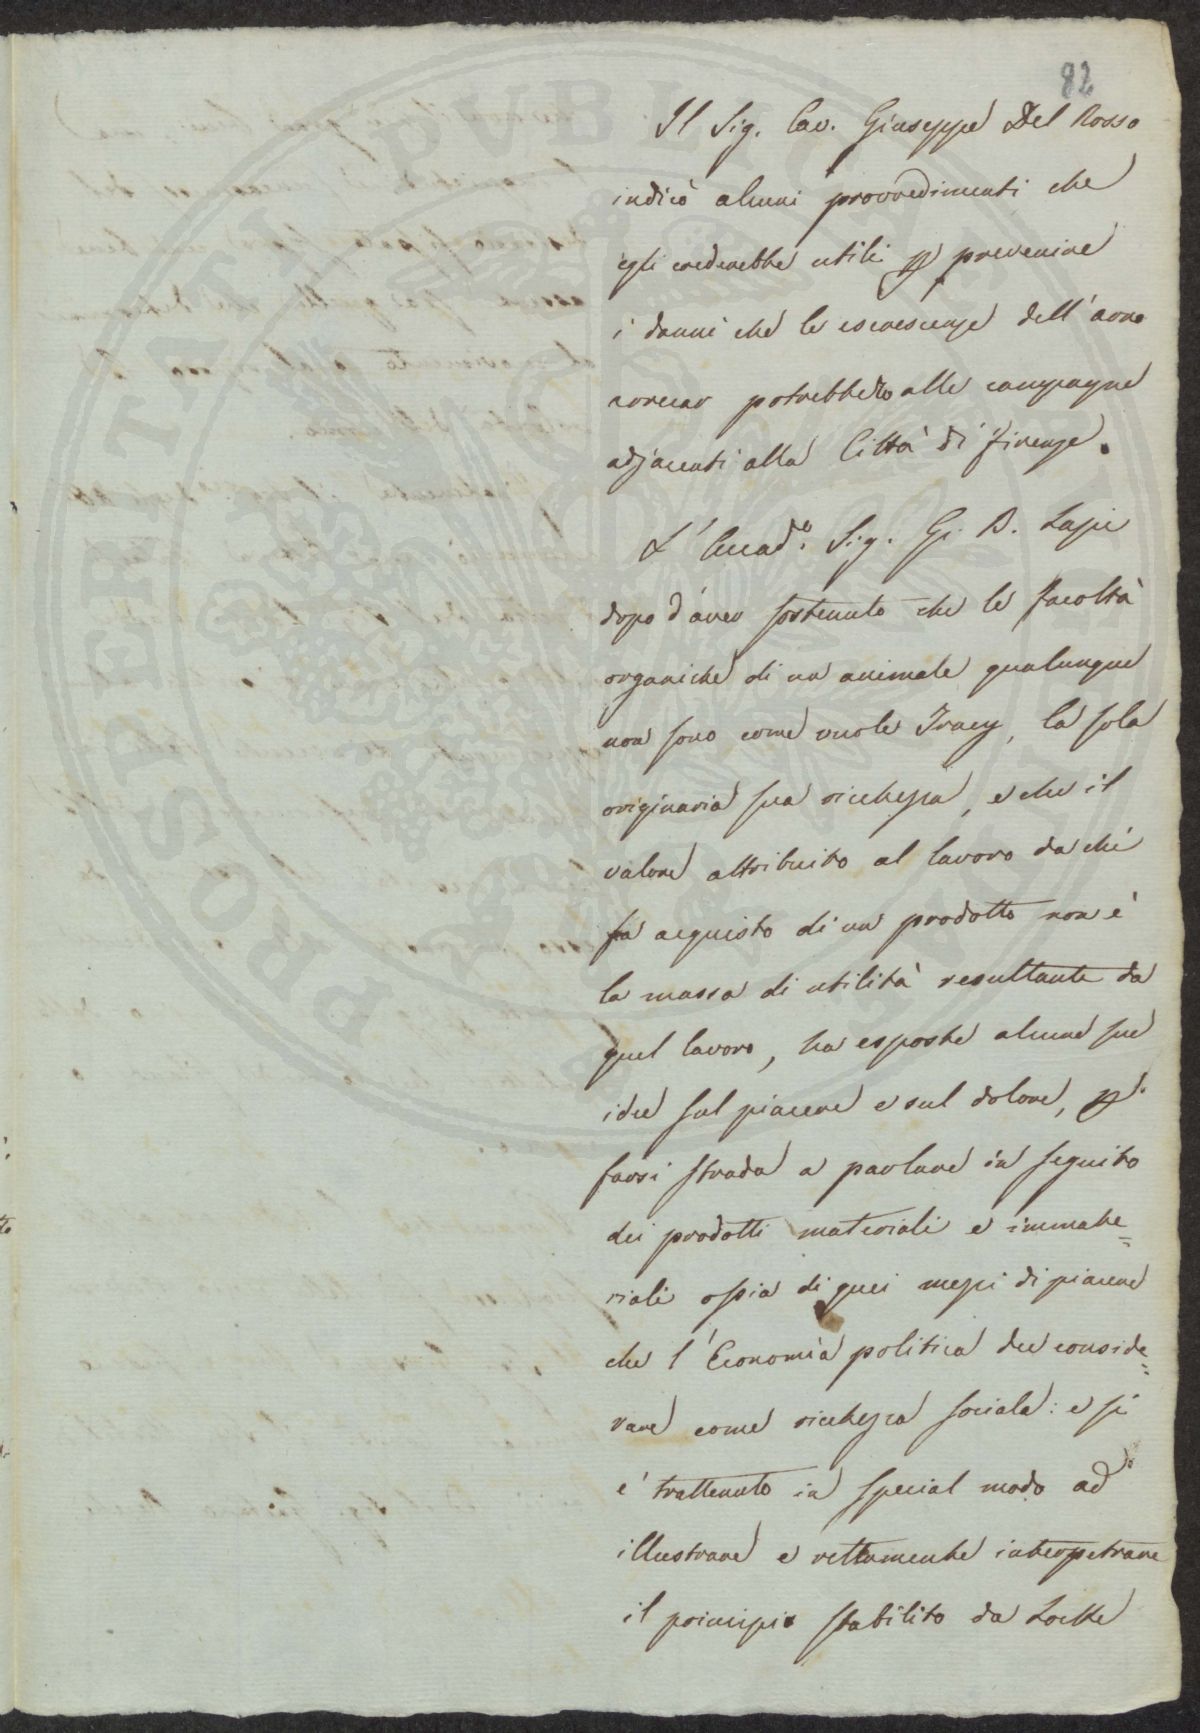 82
Il Sig. Cav. Giuseppe Del Rosso
indicò alcuni provvedimenti che
egli crederebbe utili p prevenire
i danni che le escrescenze dell'arno
arrecar potrebbero alle campagne
adjacenti alla Città di Firenze.
L'Accad.o Sig. G. B. Lapi
dopo d'aver sostenuto che le facoltà
organiche di un animale qualunque
non sono come vuole Tracy, la sola
originaria sua ricchezza, e che il
valore attribuito al lavoro da chi
fa acquisto di un prodotto non è
la massa di utilità resultante da
quel lavoro, ha esposte alcune sue
idee sul piacere e sul dolore, p.
farsi strada a parlare in seguito
dei prodotti materiali e immate=
riali ossia di quei mezzi di piacere
che l'Economia politica dee conside=
rare come ricchezza sociale: e si
è trattenuto in special modo ad
illustrare e rettamente interpetrare
il principio stabilito da Locke
PUBLICAE
PROSPERITATI